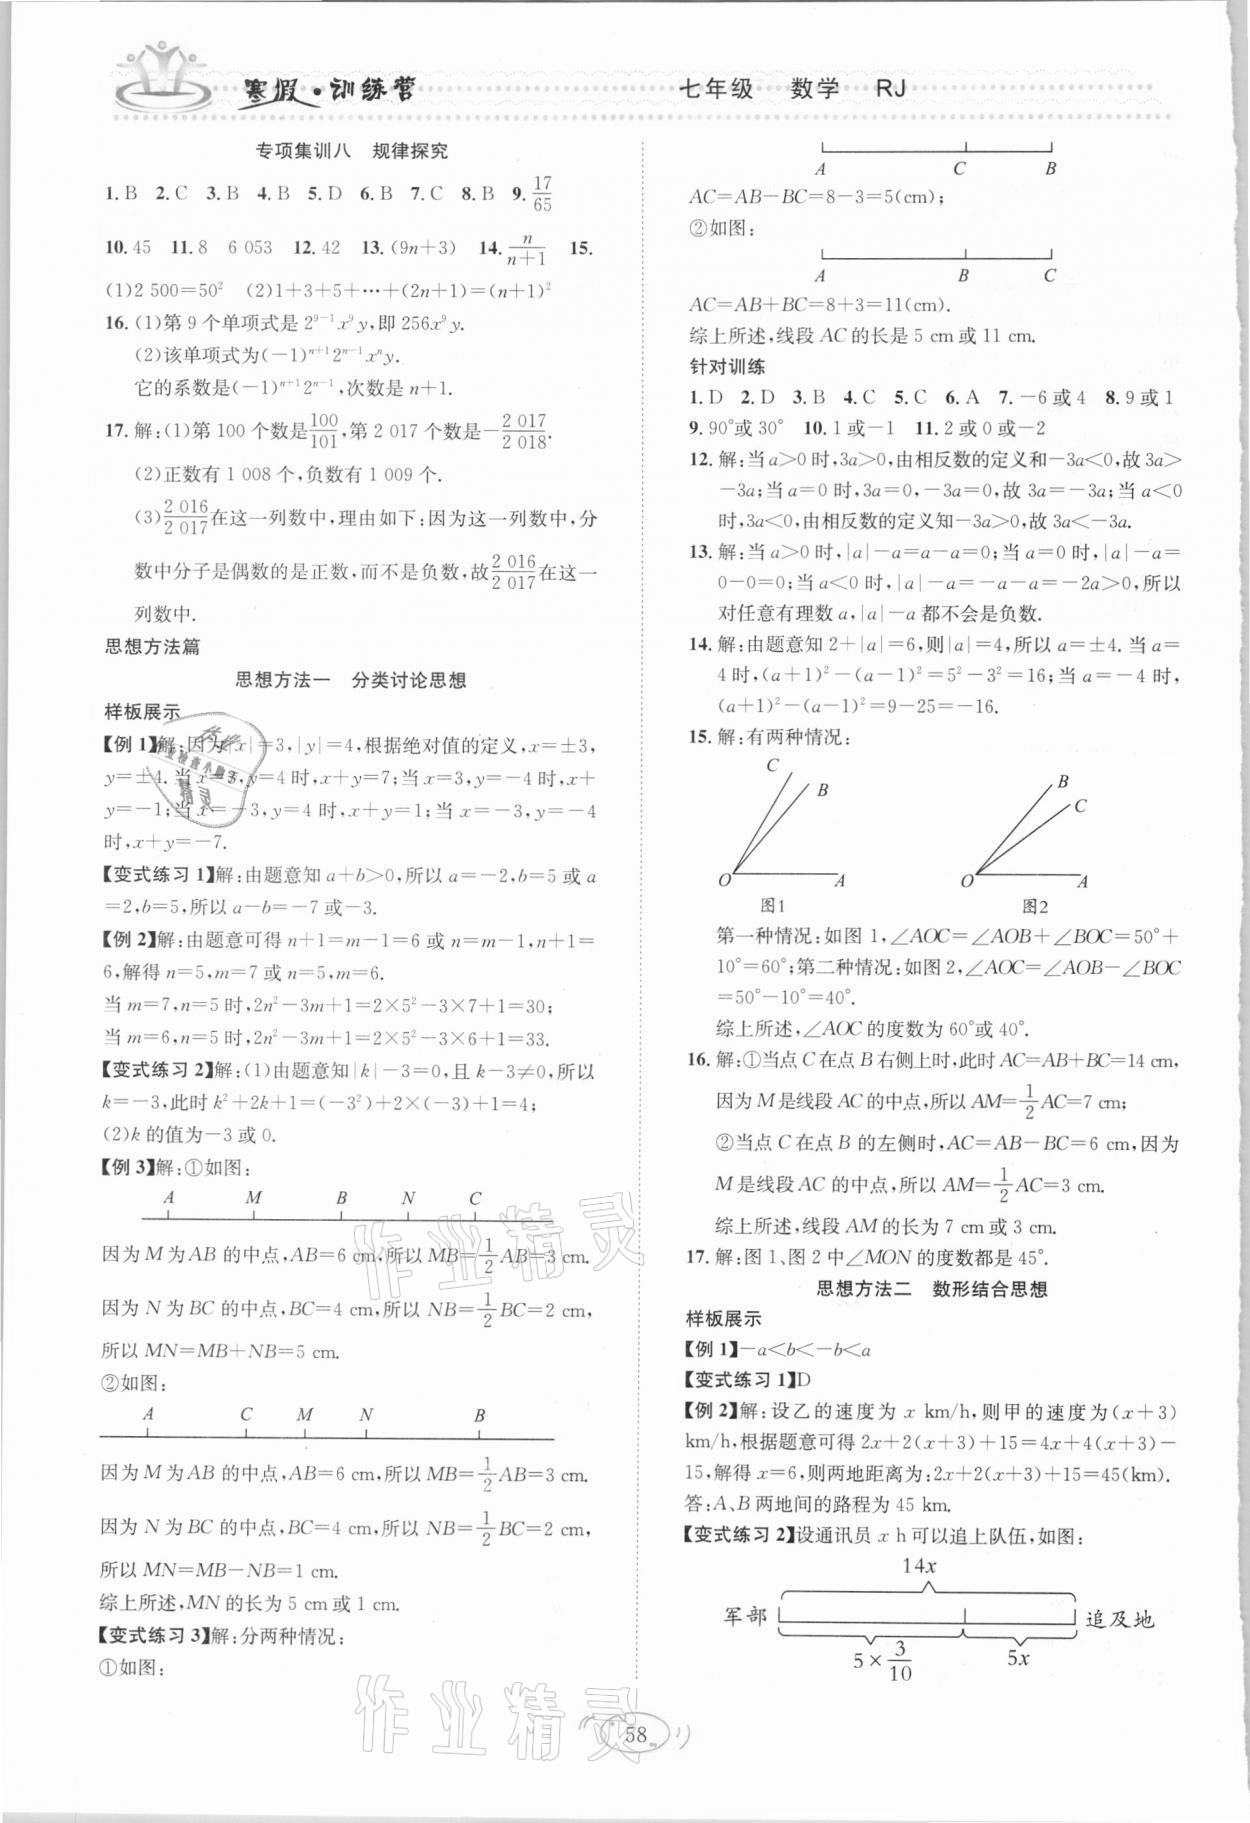 寒假·训练营
七年级 数学 RJ
专项集训八 规律探究
1. B 2. C 3. B 4. B 5. D 6. B 7. C 8. B 9. 17/65
10. 45 11. 8 6 053 12. 42 13. (9n+3) 14. n/(n+1) 15.
(1)2 500=50² (2)1+3+5+…+(2n+1)=(n+1)²
16. (1)第 9 个单项式是 2⁹⁻¹x⁹y,即 256x⁹y.
(2)该单项式为(−1)ⁿ⁺¹2ⁿ⁻¹xⁿy.
它的系数是(−1)ⁿ⁺¹2ⁿ⁻¹,次数是 n+1.
17. 解:(1)第 100 个数是100/101,第 2 017 个数是−2 017/2 018.
(2)正数有 1 008 个,负数有 1 009 个.
(3)2 016/2 017在这一列数中,理由如下:因为这一列数中,分
数中分子是偶数的是正数,而不是负数,故2 016/2 017在这一
列数中.
思想方法篇
思想方法一 分类讨论思想
样板展示
【例 1】解:因为|x|=3,|y|=4,根据绝对值的定义,x=±3,
y=±4.当 x=3,y=4 时,x+y=7;当 x=3,y=−4 时,x+
y=−1;当 x=−3,y=4 时,x+y=1;当 x=−3,y=−4
时,x+y=−7.
【变式练习 1】解:由题意知 a+b>0,所以 a=−2,b=5 或 a
=2,b=5,所以 a−b=−7 或−3.
【例 2】解:由题意可得 n+1=m−1=6 或 n=m−1,n+1=
6,解得 n=5,m=7 或 n=5,m=6.
当 m=7,n=5 时,2n²−3m+1=2×5²−3×7+1=30;
当 m=6,n=5 时,2n²−3m+1=2×5²−3×6+1=33.
【变式练习 2】解:(1)由题意知|k|−3=0,且 k−3≠0,所以
k=−3,此时 k²+2k+1=(−3²)+2×(−3)+1=4;
(2)k 的值为−3 或 0.
【例 3】解:①如图:
A M B N C
因为 M 为 AB 的中点,AB=6 cm,所以 MB=1/2AB=3 cm.
因为 N 为 BC 的中点,BC=4 cm,所以 NB=1/2BC=2 cm,
所以 MN=MB+NB=5 cm.
②如图:
A C M N B
因为 M 为 AB 的中点,AB=6 cm,所以 MB=1/2AB=3 cm.
因为 N 为 BC 的中点,BC=4 cm,所以 NB=1/2BC=2 cm,
所以 MN=MB−NB=1 cm.
综上所述,MN 的长为 5 cm 或 1 cm.
【变式练习 3】解:分两种情况:
①如图:
A C B
AC=AB−BC=8−3=5(cm);
②如图:
A B C
AC=AB+BC=8+3=11(cm).
综上所述,线段 AC 的长是 5 cm 或 11 cm.
针对训练
1. D 2. D 3. B 4. C 5. C 6. A 7. −6 或 4 8. 9 或 1
9. 90°或 30° 10. 1 或−1 11. 2 或 0 或−2
12. 解:当 a>0 时,3a>0,由相反数的定义和−3a<0,故 3a>
−3a;当 a=0 时,3a=0,−3a=0,故 3a=−3a;当 a<0
时,3a<0,由相反数的定义知−3a>0,故 3a<−3a.
13. 解:当 a>0 时,|a|−a=a−a=0;当 a=0 时,|a|−a=
0−0=0;当 a<0 时,|a|−a=−a−a=−2a>0,所以
对任意有理数 a,|a|−a 都不会是负数.
14. 解:由题意知 2+|a|=6,则|a|=4,所以 a=±4. 当 a=
4 时,(a+1)²−(a−1)²=5²−3²=16;当 a=−4 时,
(a+1)²−(a−1)²=9−25=−16.
15. 解:有两种情况:
C B O A
B C O A
图1 图2
第一种情况:如图 1,∠AOC=∠AOB+∠BOC=50°+
10°=60°;第二种情况:如图 2,∠AOC=∠AOB−∠BOC
=50°−10°=40°.
综上所述,∠AOC 的度数为 60°或 40°.
16. 解:①当点 C 在点 B 右侧上时,此时 AC=AB+BC=14 cm,
因为 M 是线段 AC 的中点,所以 AM=1/2AC=7 cm;
②当点 C 在点 B 的左侧时,AC=AB−BC=6 cm,因为
M 是线段 AC 的中点,所以 AM=1/2AC=3 cm.
综上所述,线段 AM 的长为 7 cm 或 3 cm.
17. 解:图 1、图 2 中∠MON 的度数都是 45°.
思想方法二 数形结合思想
样板展示
【例 1】−a<b<−b<a
【变式练习 1】D
【例 2】解:设乙的速度为 x km/h,则甲的速度为(x+3)
km/h,根据题意可得 2x+2(x+3)+15=4x+4(x+3)−
15,解得 x=6,则两地距离为:2x+2(x+3)+15=45(km).
答:A、B 两地间的路程为 45 km.
【变式练习 2】设通讯员 x h 可以追上队伍,如图:
14x
军部 追及地
5×3/10 5x
58
作业精灵
作业精灵